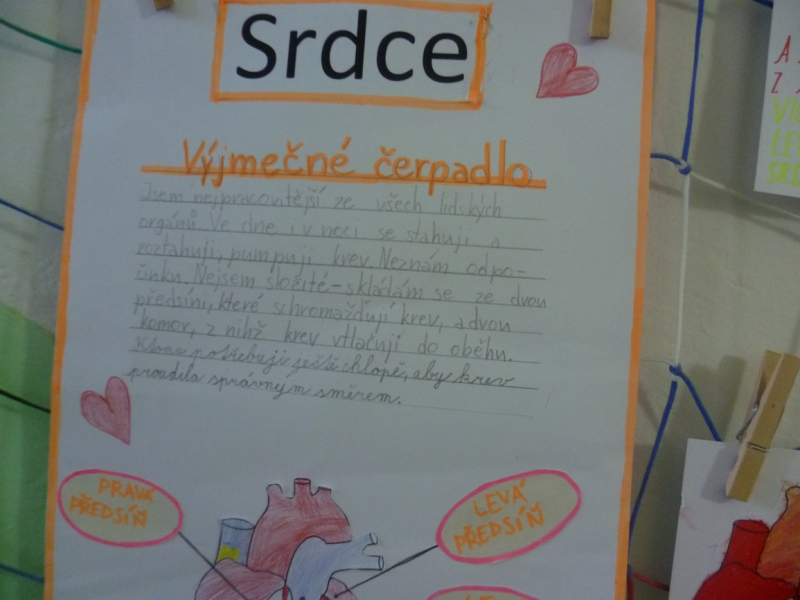 Srdce
Výjmečné čerpadlo
Jsem nejpracovitější ze všech lidských
orgánů. Ve dne i v noci se stahuji a
roztahuji, pumpuji krev. Neznám odpo-
činku. Nejsem složité - skládám se ze dvou
předsíní, které schromažďují krev, a dvou
komor, z nihž krev vtlačuji do oběhu.
potřebuji ještě chlopě, aby krev
proudila správným směrem.
PRAVÁ
PŘEDSÍŇ
LEVÁ
PŘEDSÍŇ